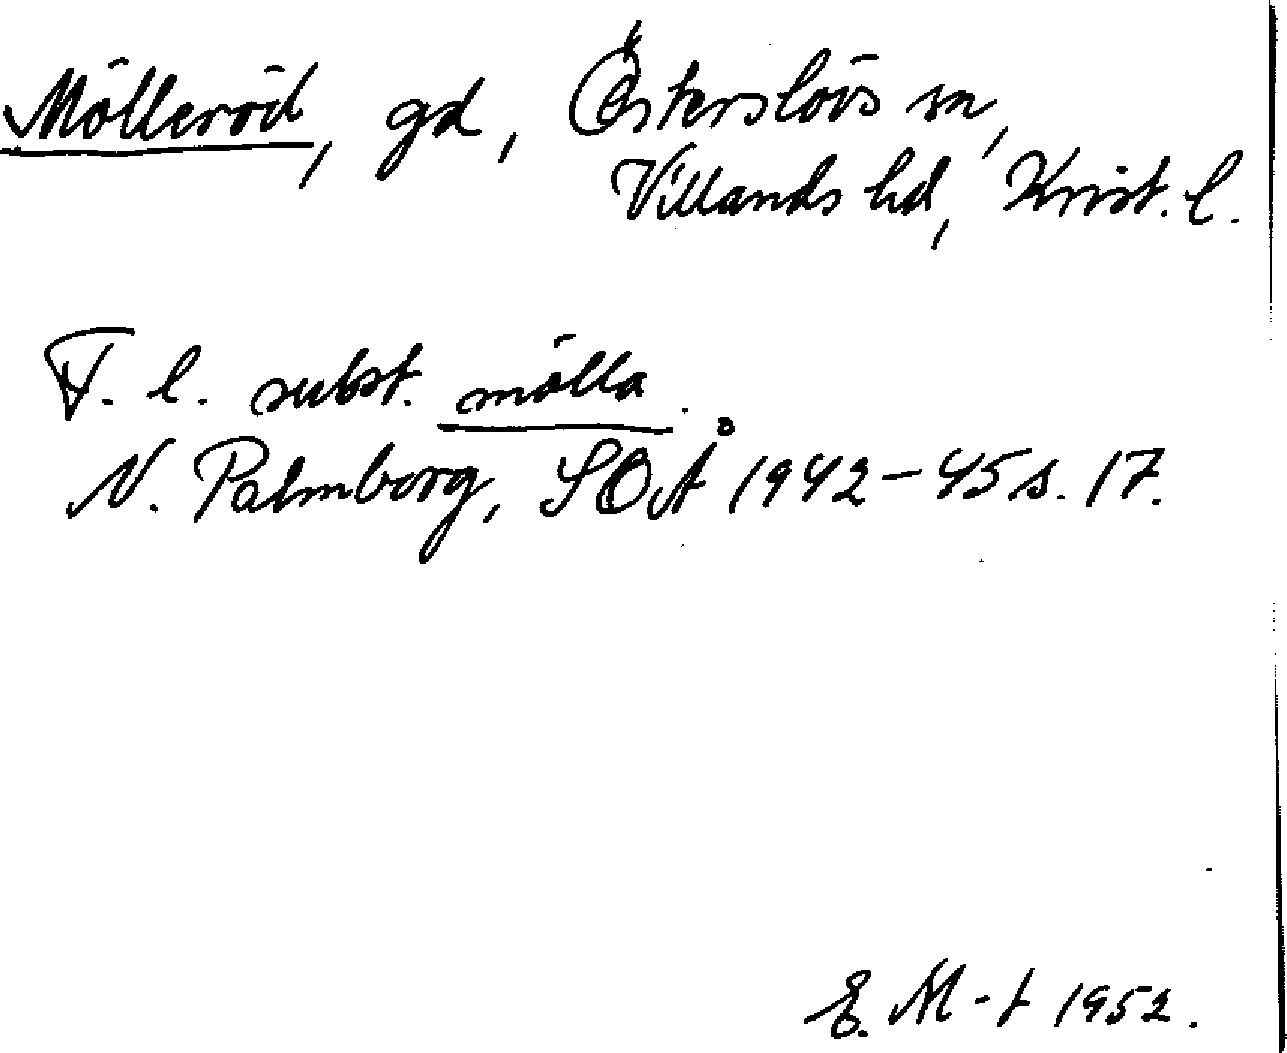 Mölleröd, gd, Österslövs sn,
Villands hd, Krist. l.
F. l. subst. mölla.
N. Palmborg, SOÅ 1942-45 s. 17.
E. M-t 1952.